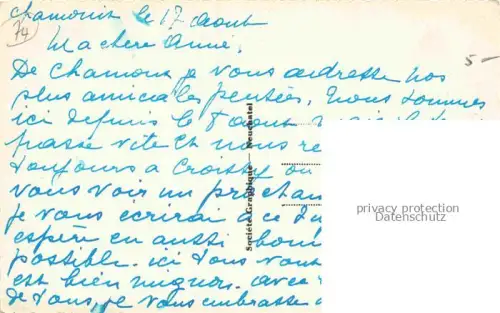 Chamonix le 17 Août
74
Ma chère Anne,
5-
De Chamonix je vous adresse nos
plus amicales pensées, nous sommes
ici depuis le 8 août
passe vite et nous re
toujours a Croissy ou
vous voir un prochai
je vous écrirai a ce su
espère en aussi bonn
possible. ici tous vont
est bien mignon. avec
de tous, je vous embrasse
Société Graphique — Neuchatel
privacy protection
Datenschutz